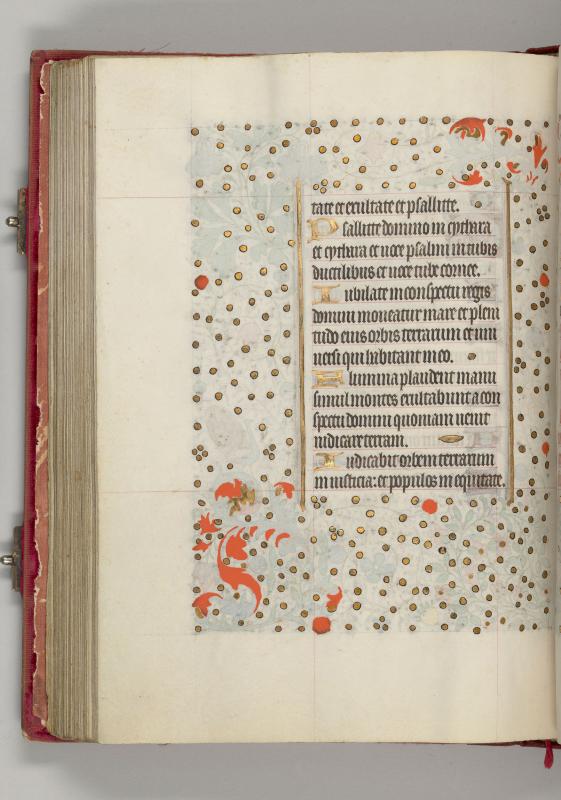 tate et exultate et psallite.
Psallite domino in cythara
et cythara et uoce psalmi in tubis
ductilibus et uoce tube cornee.
Iubilate in conspectu regis
domini moueatur mare et pleni
tudo eius orbis terrarum et uni
uersi qui habitant in eo.
Flumina plaudent manu
simul montes exultabunt a con
spectu domini quoniam uenit
iudicare terram.
Iudicabit orbem terrarum
in iusticia: et populos in equitate.